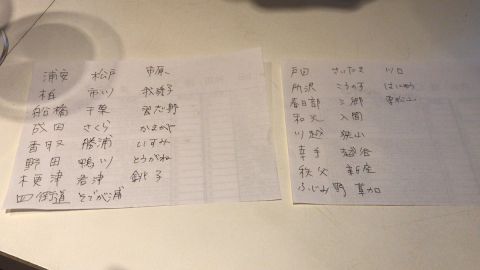 浦安 松戸 市原
柏 市川 我孫子
船橋 千葉 習志野
成田 さくら かまがや
香取 勝浦 いすみ
野田 鴨川 とうがね
木更津 君津 銚子
四街道 そでが浦
戸田 さいたま 川口
所沢 こうのす はにゅう
春日部 三郷 東松山
和光 入間
川越 狭山
幸手 越谷
秩父 新座
ふじみ野 草加